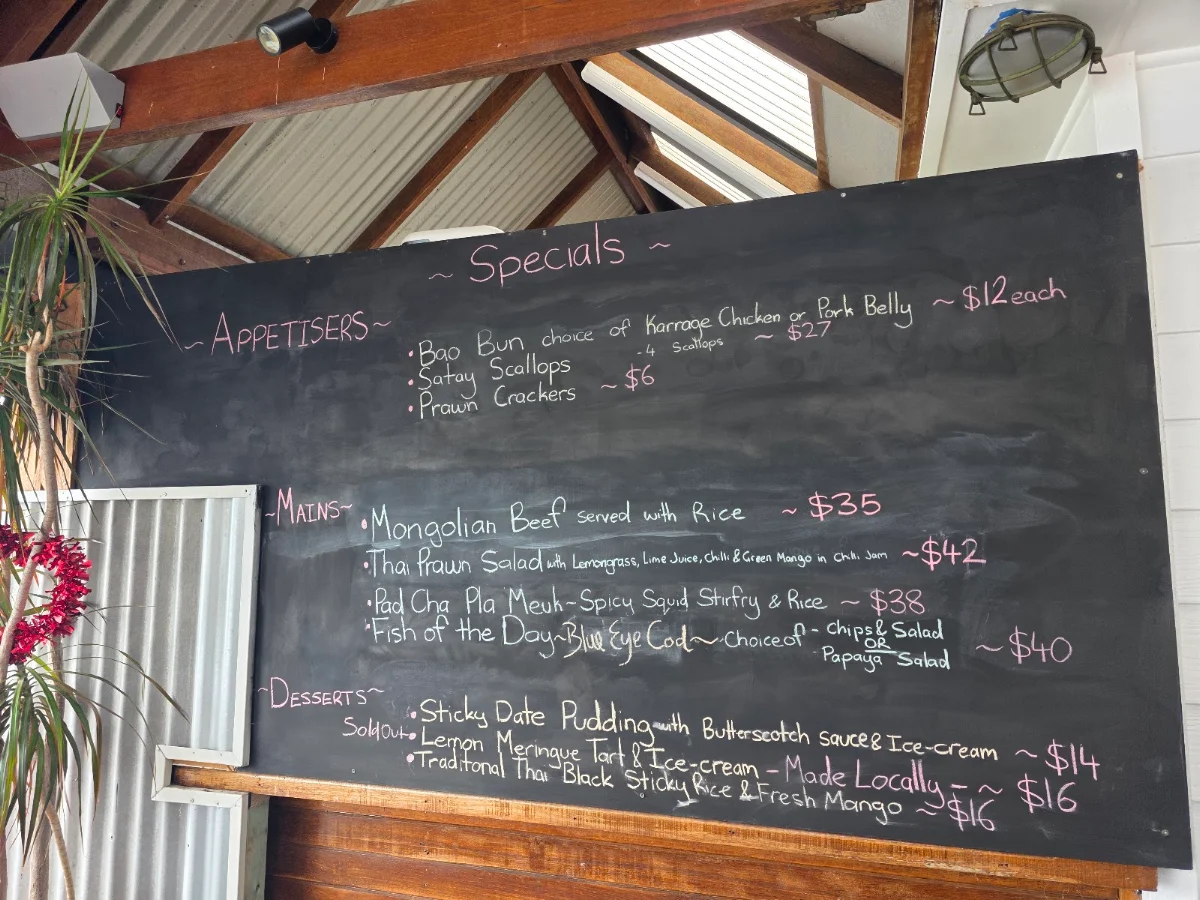 ~ Specials ~
~ APPETISERS ~
• Bao Bun choice of Karrage Chicken or Pork Belly ~ $12 each
• Satay Scallops - 4 Scallops ~ $27
• Prawn Crackers ~ $6
~ MAINS ~
• Mongolian Beef served with Rice ~ $35
• Thai Prawn Salad with Lemongrass, Lime Juice, Chilli & Green Mango in Chilli Jam ~ $42
• Pad Cha Pla Meuk ~ Spicy Squid Stirfry & Rice ~ $38
• Fish of the Day ~ Blue Eye Cod ~ Choice of - Chips & Salad
OR
- Papaya Salad ~ $40
~ DESSERTS ~
• Sticky Date Pudding with Butterscotch sauce & Ice-cream ~ $14
Sold Out • Lemon Meringue Tart & Ice-cream - Made Locally - ~ $16
• Traditonal Thai Black Sticky Rice & Fresh Mango ~ $16